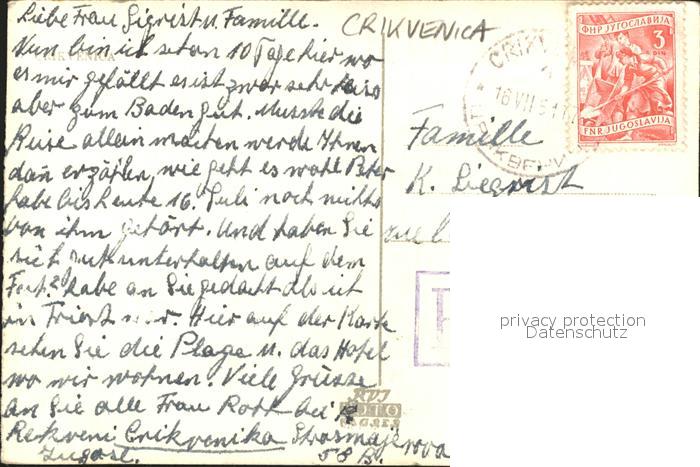 Liebe Frau Sigrist u. Famille.
CRIKVENICA
Nun bin ich schon 10 Tage hier wo
es mir gefällt es ist zwar sehr heiss
aber zum Baden gut. Musste die
Reise allein machen werde Ihnen
dan erzählen, wie geht es wohl Peter
habe bis heute 16. Juli noch nichts
von ihm gehört. Und haben Sie
sich gut unterhalten auf dem
Fest? habe an Sie gedacht als ich
in Triest war. Hier auf der Karte
sehen Sie die Plage u. das Hotel
wo wir wohnen. Viele Grüsse
an Sie alle Frau Rott bei
Crikvenika
Jugosl. 58 B.
CRIKVENICA
ФНР ЈУГОСЛАВИЈА
3
DIN
FNR JUGOSLAVIJA
16 VII 51
Famille
K. Siegrist
FOTO
ZAGREB
privacy protection
Datenschutz